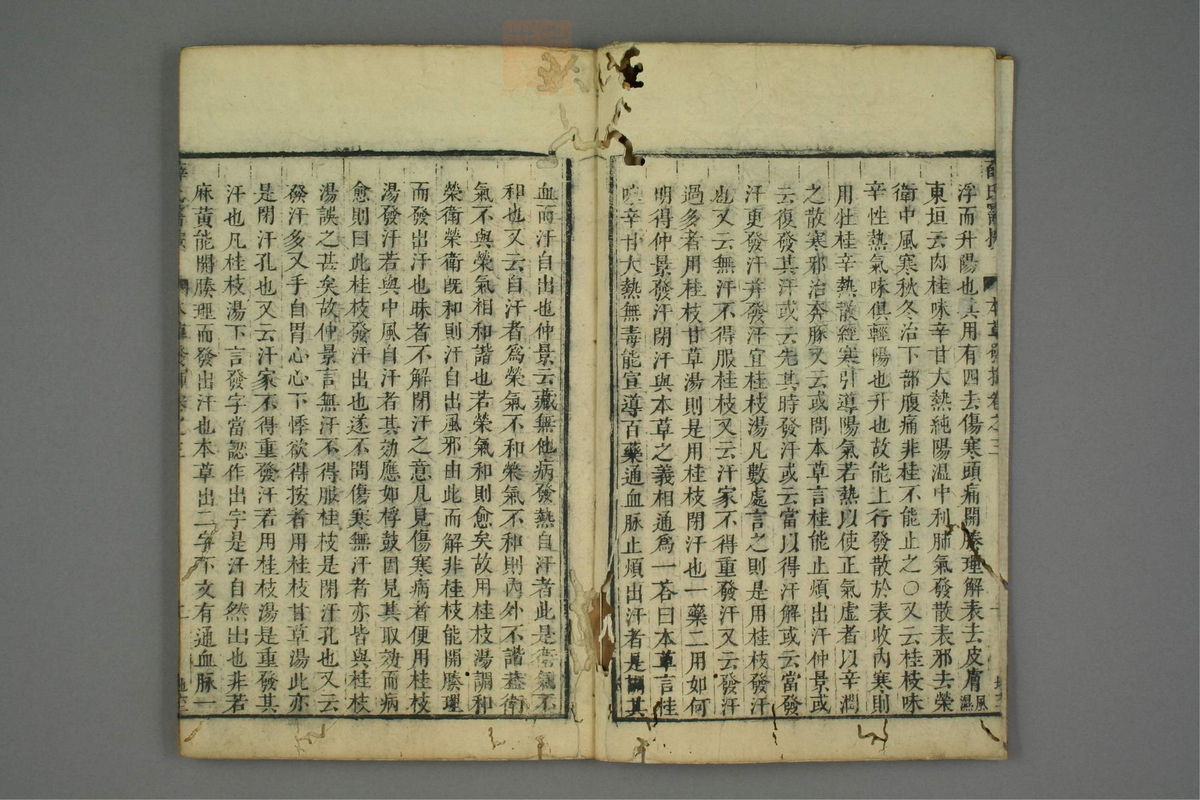 浮而升陽也其用有四去傷寒頭痛開腠理解表去皮膚風濕
東垣云肉桂味辛甘大熱純陽温中利肺氣發散表邪去榮
衛中風寒秋冬治下部腹痛非桂不能止之○又云桂枝味
辛性熱氣味俱輕陽也升也故能上行發散於表收內寒則
用牡桂辛熱散經寒引導陽氣若熱以使正氣虛者以辛潤
之散寒邪治奔豚又云或問本草言桂能止煩出汗仲景或
云復發其汗或云先其時發汗或云當以得汗解或云當發
汗更發汗并發汗宜桂枝湯凡數處言之則是用桂枝發汗
也又云無汗不得服桂枝又云汗家不得重發汗又云發汗
過多者用桂枝甘草湯則是用桂枝閉汗也一藥二用如何
明得仲景發汗閉汗與本草之義相通為一荅曰本草言桂
辛甘大熱無毒能宣導百藥通血脉止煩出汗者是調其
血而汗自出也仲景云藏無他病發熱自汗者此是衛氣不
和也又云自汗者為榮氣不和榮氣不和則內外不諧盖衛
氣不與榮氣相和諧也若榮氣和則愈矣故用桂枝湯調和
榮衛榮衛旣和則汗自出風邪由此而解非桂枝能開腠理
而發出汗也昧者不解閉汗之意凡見傷寒病者便用桂枝
湯發汗若與中風自汗者其効應如桴鼓因見其取効而病
愈則曰此桂枝發汗出也遂不問傷寒無汗者亦皆與桂枝
湯誤之甚矣故仲景言無汗不得服桂枝是閉汗孔也又云
發汗多又手自冒心心下悸欲得按者用桂枝甘草湯此亦
是閉汗孔也又云汗家不得重發汗若用桂枝湯是重發其
汗也凡桂枝湯下言發字當認作出字是汗自然出也非若
麻黃能開腠理而發出汗也本草出二字下文有通血脉一